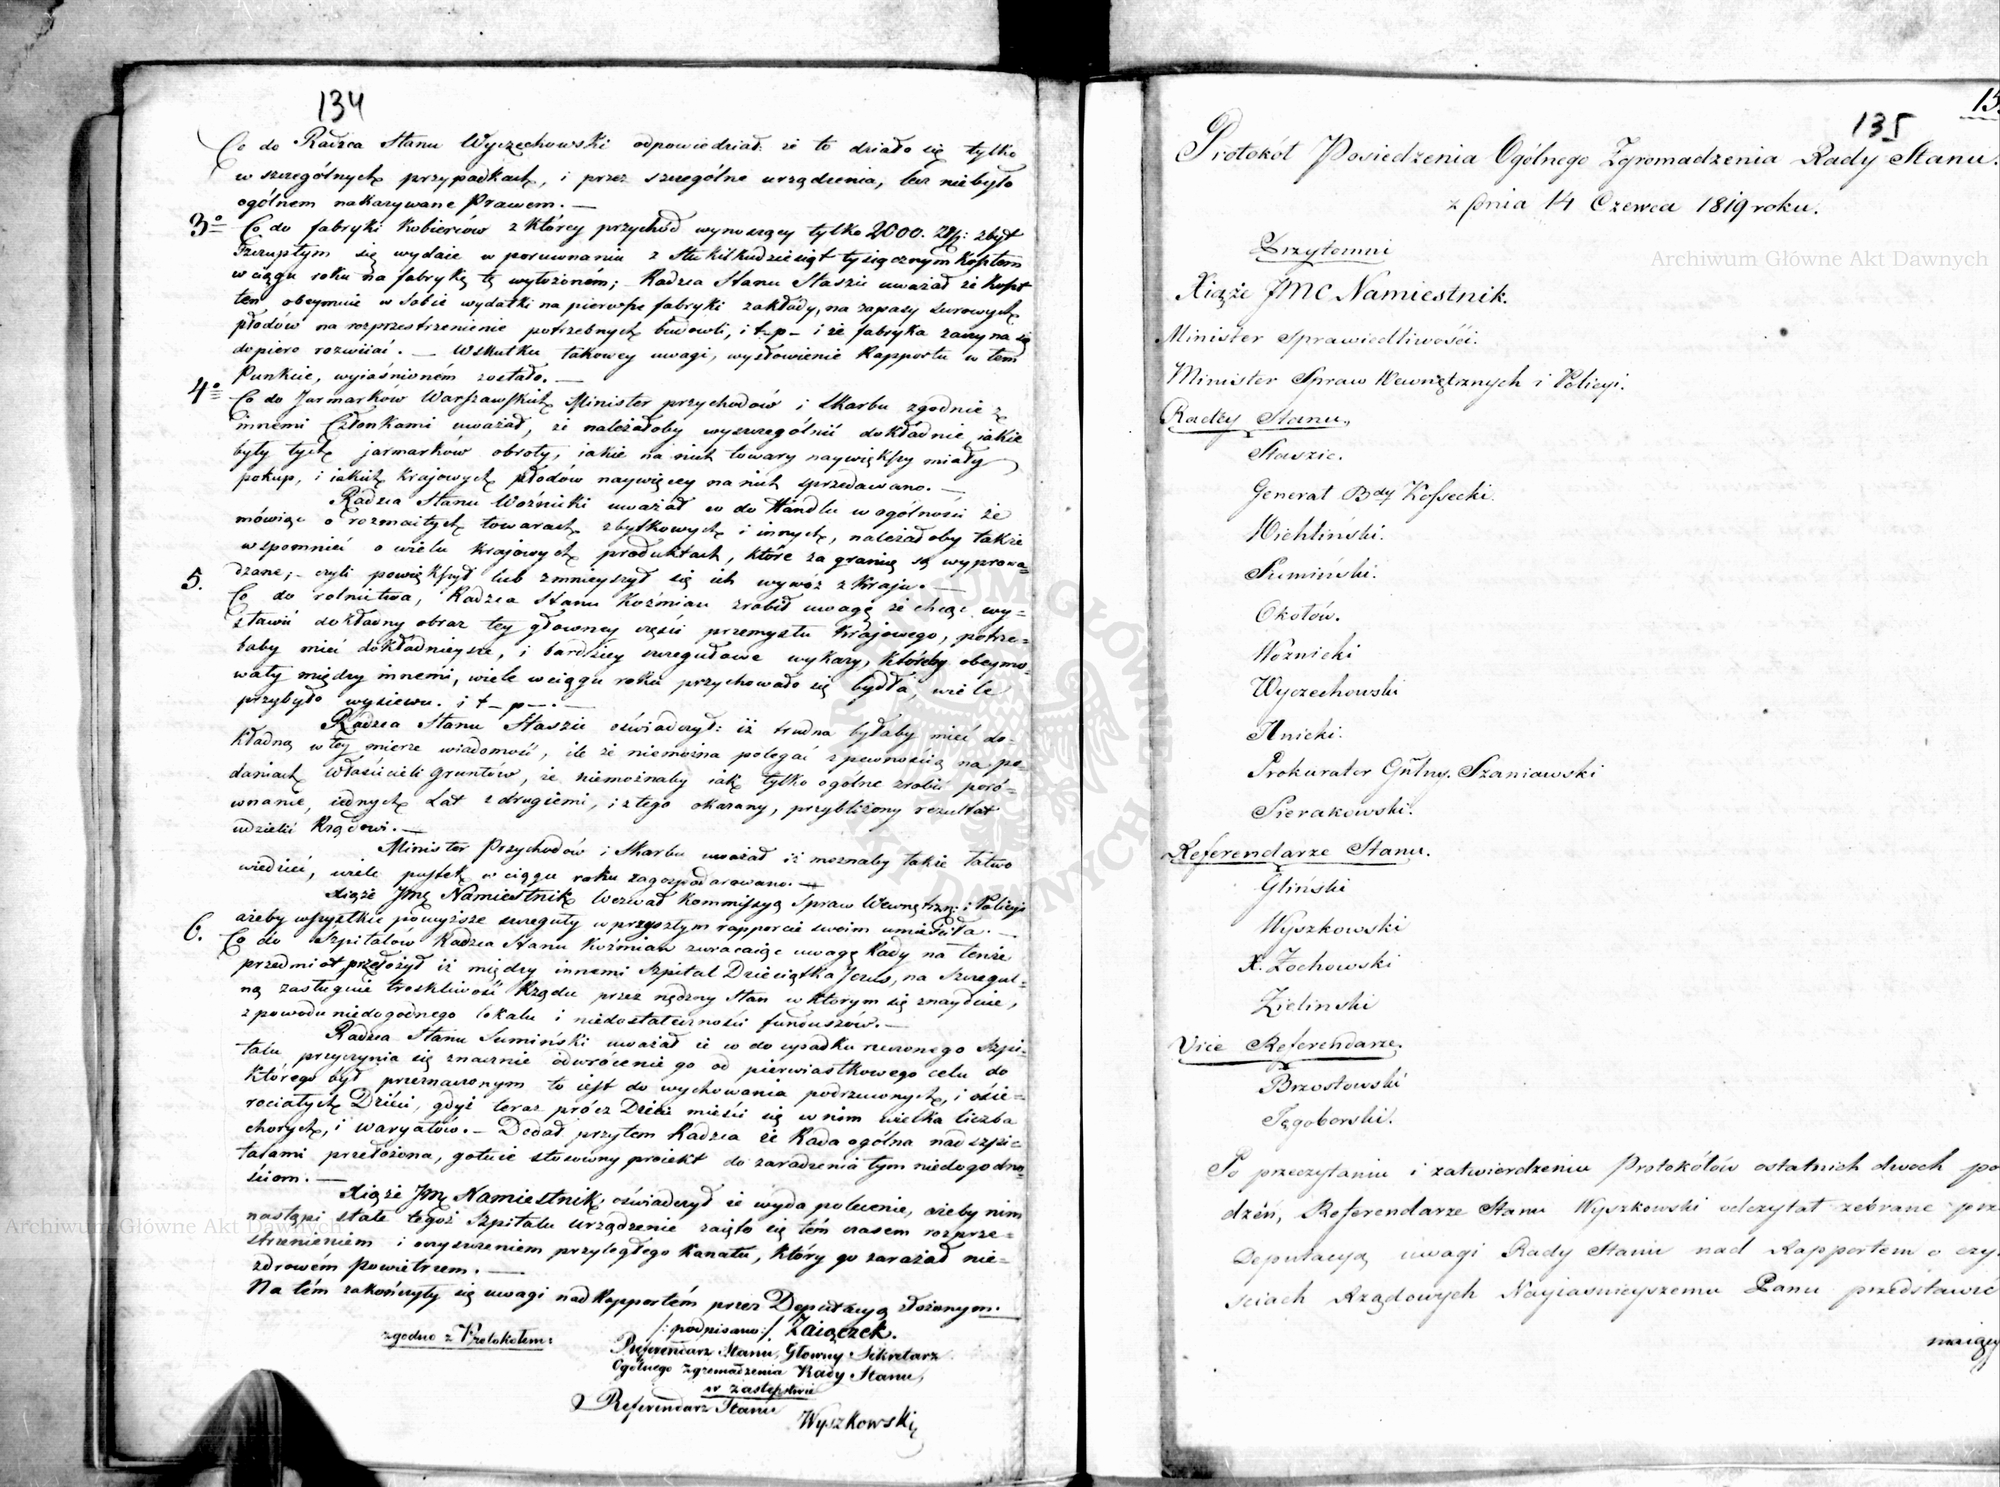 134
Co do Radzca Stanu Wyczechowski odpowiedział: że to działo się tylko
w szczególnych przypadkach, i przez szczególne urządzenia, lecz niebyło
ogólnem nakazywane Prawem. —
3o Co do fabryki Kobierców z którey przychód wynoszący tylko 2000. Złp: zbyt
szczupłym się wydaie w porównaniu z Stu kilkudziesiąt tysiącznym kosztem
w ciągu roku na fabrykę tę wyłożoném; — Radzca Stanu Staszic uważał że koszt
ten obeymuie w sobie wydatki na pierwsze fabryki zakłady, na zapasy surowych
płodów na rozprzestrzenienie potrzebnych budowli, i t–p– i że fabryka zaczyna się
dopiero rozwiiać. — Wskutku takowey uwagi, wysłowienie Rapportu w tem
Punkcie, wyiaśnioném zostało. —
4o Co do Jarmarków Warszawskich Minister przychodów i Skarbu zgodnie z
innemi Członkami uważał, że należałoby wyszczególnić dokładnie, jakie
były tych jarmarków obroty, iakie na nich towary naywiększy miały
pokup, i iakich krajowych płodów naywięcey na nich sprzedawano. —
Radzca Stanu Woźnicki uważał co do Handlu w ogólności że
mówiąc o rozmaitych towarach zbytkowych i innych, należałoby także
wspomnieć o wielu krajowych produktach, które za granicę są wyprowa=
dzane; — czyli powiększył lub zmnieyszył się ich wywóz z Kraju. —
5. Co do rolnictwa, Radzca Stanu Koźmian zrobił uwagę że chcąc wy=
stawić dokładny obraz tey główney części przemysłu krajowego, potrze=
baby mieć dokładnieysze, i bardziey szczegułowe wykazy, któreby obeymo=
wały między innemi, wiele w ciągu roku przychowało się bydła, wiele
przybyło wysiewu. i t–p–. —
Radzca Stanu Staszic oświadczył: iż trudna byłaby mieć do=
kładną w tey mierze wiadomość, ile że niemożna polegać z pewnością na po=
daniach właścicieli gruntów, że niemożnaby iak tylko ogólne zrobić poró=
wnanie, iednych Lat z drugiemi, i z tego okazany, przybliżony rezultat
udzielić Rządowi. —
Minister Przychodów i Skarbu uważał iż możnaby także łatwo
wiedzieć, wiele pustek w ciągu roku zagospodarowano. —
Xiąże Jmć Namiestnik wezwał Kommissyą Spraw Wewnętrzn: i Policyi
ażeby wszystkie powyższe szczeguły w przyszłym rapporcie swoim umieściła. —
6. Co do Szpitalów Radzca Stanu Koźmian zwracaiąc uwagę Rady na tenże
przedmiot przełożył iż między innemi Szpital Dzieciątka Jezus, na Szczegul=
ną zasługuie troskliwość Rządu przez nędzny Stan w którym się znayduie,
z powodu niedogodnego lokalu i niedostateczności funduszów. —
Radzca Stanu Sumiński uważał że co do upadku rzeczonego Szpi=
talu przyczynia się znacznie odwrócenie go od pierwiastkowego celu do
którego był przeznaczonym to iest do wychowania podrzuconych, i osie=
rociałych Dzieci, gdyż teraz prócz Dzieci mieści się w nim wielka liczba
chorych, i waryatów. — Dodał przytem Radzca że Rada ogólna nad szpi=
talami przełożona, gotuie stosowny proiekt do zaradzenia tym niedogodno=
ściom. —
Xiąże Jmć Namiestnik, oświadczył że wyda polecenie, ażeby nim
nastąpi stałe tegoż Szpitalu urządzenie zaięto się tém czasem rozprze=
strzenieniem i oczyszczeniem przyległego kanału, który go zarażał nie=
zdrowém powietrzem. —
Na tém zakończyły się uwagi nad Rapportém przez Deputacyą złożonym.
/:podpisano:/ Zaiączek.
zgodno z Protokołem:
Referendarz Stanu, Głowny Sekretarz
Ogólnego Zgromadzenia Rady Stanu,
w zastępstwie
Referendarz Stanu
Wyszkowski
135
Protokół Posiedzenia Ogólnego Zgromadzenia Rady Stanu.
z Dnia 14 Czerwca 1819 roku.
Przytomni
Xiąże JMC Namiestnik.
Minister Sprawiedliwości.
Minister Spraw Wewnętrznych i Policyi.
Radzcy Stanu,
Staszic.
Generał Bdy Kossecki.
Michliński.
Sumiński.
Okołów.
Woźnicki
Wyczechowski
Hnicki.
Prokurator Gnlny. Szaniawski
Sierakowski.
Referendarze Stanu.
Gliński
Wyszkowski
X. Żochowski
Zieliński
Vice Referendarze.
Brzostowski
Tęgoborski.
Po przeczytaniu i zatwierdzeniu Protokółów ostatnich dwoch po
dzeń, Referendarz Stanu Wyszkowski odczytał zebrane prz
Deputacyą uwagi Rady Stanu nad Rapportem o czy
ściach Rządowych Nayiaśnieyszemu Panu przedstawić
maiący
Archiwum Główne Akt Dawnych
Archiwum Główne Akt Dawnych
ARCHIWUM GŁÓWNE AKT DAWNYCH